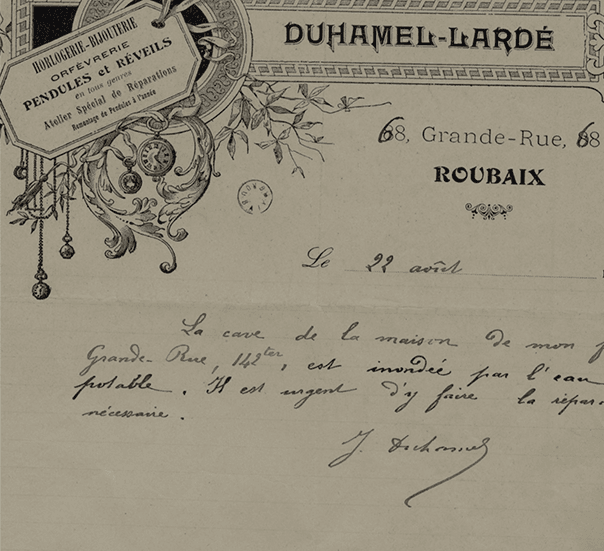 HORLOGERIE-BIJOUTERIE
ORFÈVRERIE
PENDULES et RÉVEILS
en tous genres
Atelier Spécial de Réparations
Remontage de Pendules à l'année
DUHAMEL-LARDÉ
68, Grande-Rue, 68
ROUBAIX
Le 22 août
La cave de la maison de mon
Grande-Rue, 142ter, est inondée par l'eau
potable. Il est urgent d'y faire la répar
nécessaire.
J.